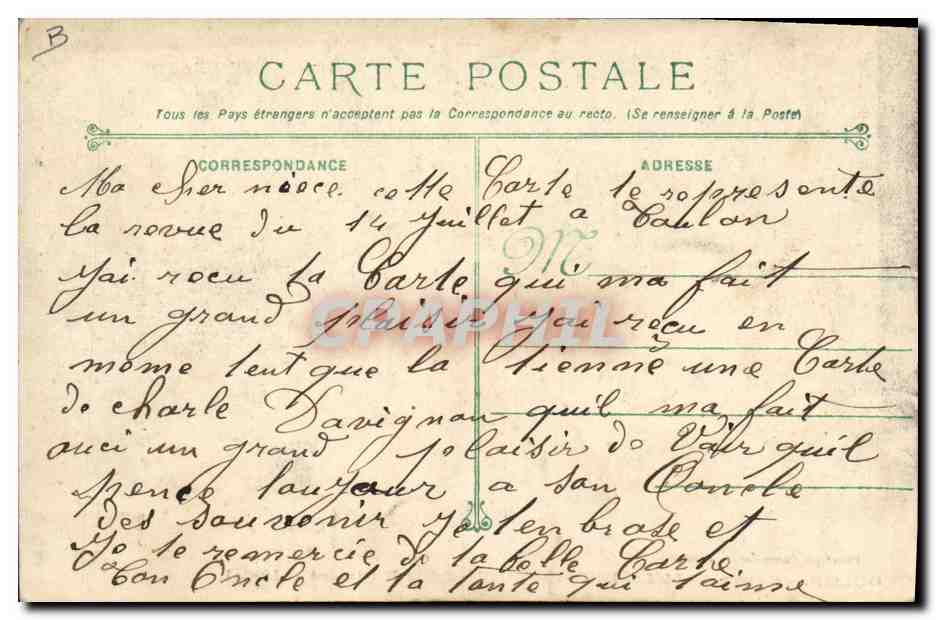 B
CARTE POSTALE
Tous les Pays étrangers n'acceptent pas la Correspondance au recto. (Se renseigner à la Poste)
CORRESPONDANCE
ADRESSE
M
Ma cher niéce cette Carte te represente
la revue du 14 Juillet a Toulon
J'ai recu ta Carte qui ma fait
un grand plaisir J'ai reçu en
mome tent que la tienne une Carte
de charle Davignon quil ma fait
auci un grand plaisir de Voir quil
pence toujour a son Oncle
des souvenir Je t'enbrase et
Je te remercie de ta belle Carte
Ton Oncle et ta tante qui t'aime
CPAPHIL